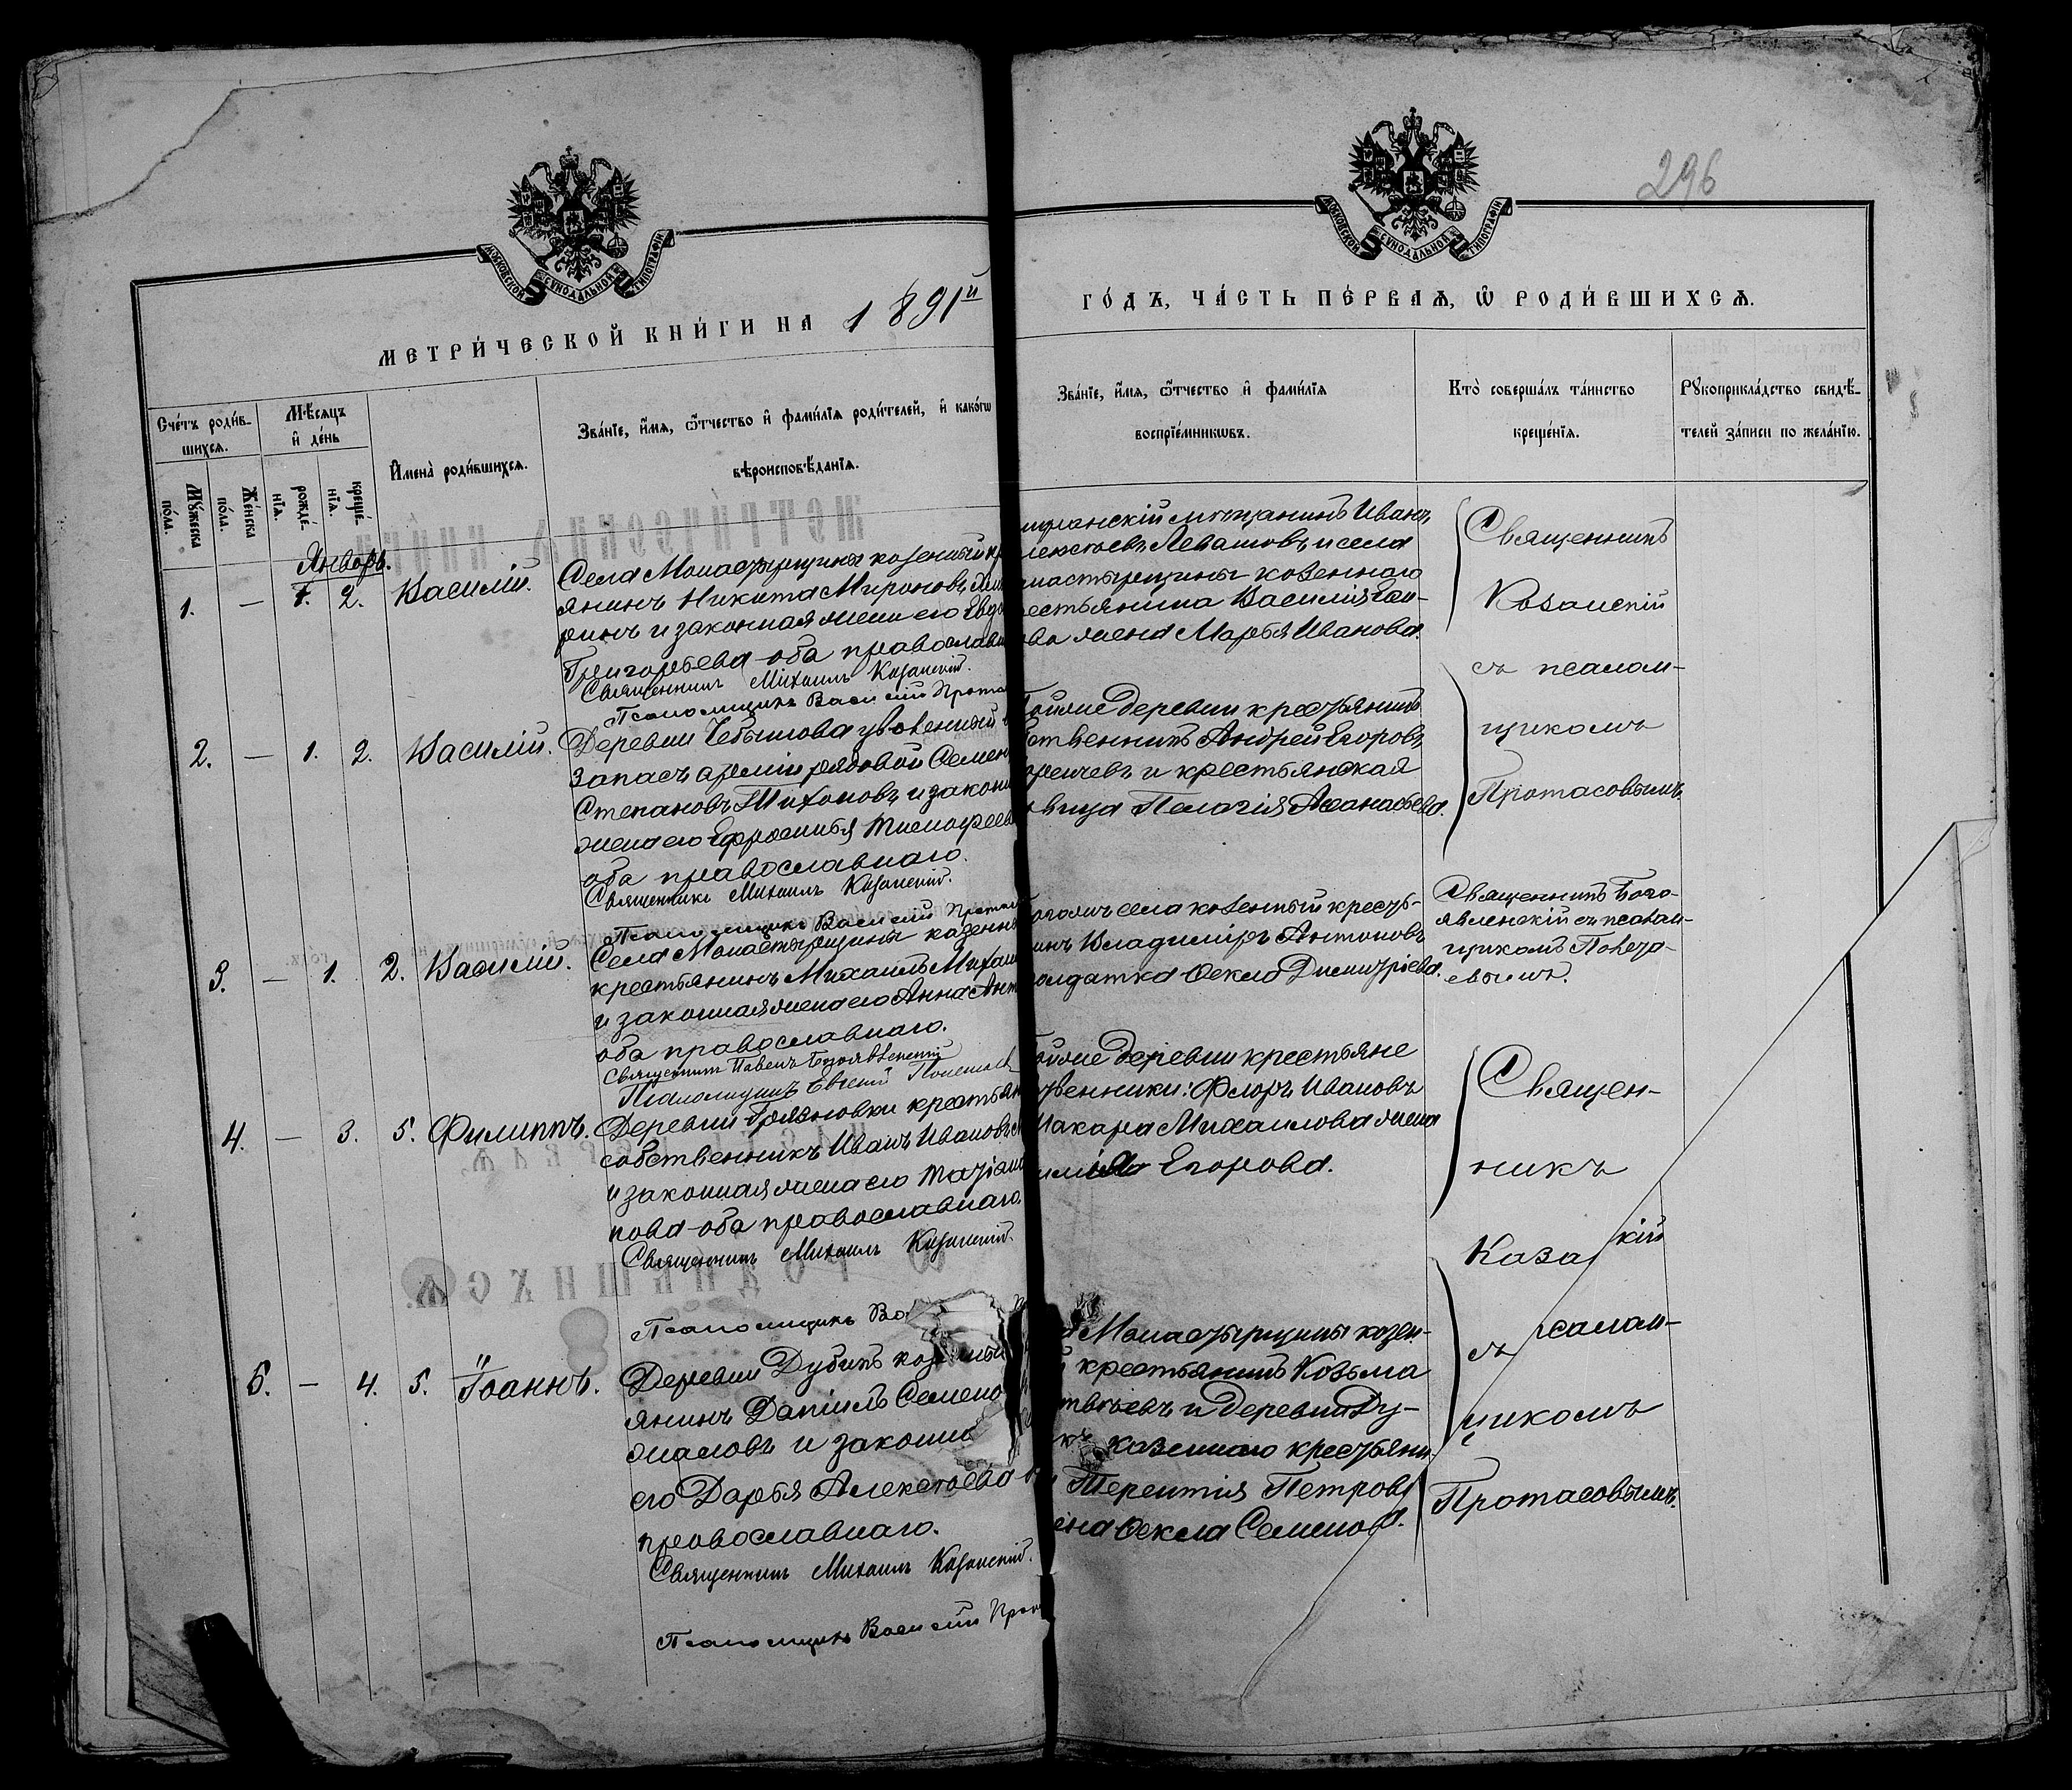 296
МОСКОВСКОЙ СѴНОДАЛЬНОЙ ТИПОГРАФІИ
МОСКОВСКОЙ СѴНОДАЛЬНОЙ ТИПОГРАФІИ
МЕТРИ́ЧЕСКОЙ КНИ́ГИ НА 1891й
ГО́ДЪ, ЧА́СТЬ ПЕ́РВАѦ, Ѡ҆ РОДИ́ВШИХСѦ.
Сче́тъ роди́в-
шихсѧ.
Мѣ́сѧцъ
и҆ де́нь
Мꙋ́жеска
по́ла.
Же́нска
по́ла.
рожде́-
нїѧ.
креще́-
нїѧ.
И҆мена̀ роди́вшихсѧ.
Зва́нїе, и҆́мѧ, ѻ҆́тчество и҆ фами́лїѧ роди́телей, и҆ како́гѡ
вѣроисповѣ́данїѧ.
Зва́нїе, и҆́мѧ, ѻ҆́тчество и҆ фами́лїѧ
воспрїе́мникѡвъ.
Кто̀ соверша́лъ та́инство
креще́нїѧ.
Рꙋкоприкла́дство свидѣ́-
телей за́писи по жела́нїю.
Январь.
1. — 1. 2. Василій.
Села Монастырщины козенный кр
янинъ Никита Мироновъ
ринъ и законная жена его Евд
Григорьева оба православн
Священникъ Михаилъ Казанскій.
Псаломщикъ Василій Прота
мѣщанинъ Иванъ
Алексѣевъ Левашовъ и села
Монастырщины козеннаго
крестьянина Василія
жена Марѳа Иванова.
Священникъ
Козанскій
съ псалом-
щикомъ
Протасовымъ.
2. — 1. 2. Василій.
Деревни уволенный в
запасъ арміи рядовой Семен
Степановъ Тихоновъ и законн
жена его Ефросинья Тимофеев
оба православнаго.
Священникъ Михаилъ Казанскій.
Псаломщикъ Василій Протас
Тойже деревни крестьянинъ
собственникъ Андрей Егоровъ
и крестьянская
вица Пелагія Аѳанасьева.
3. — 1. 2. Василій.
Села Монастырщины казенн
крестьянинъ Михаилъ Михаи
и законная жена его Анна Ант
оба православнаго.
Священникъ Павелъ Богоявленскій
Псаломщикъ
Тогожъ села козенный кресть-
янинъ Владиміръ Антоновъ
солдатка Ѳекла Димитріева.
Священникъ Бого-
явленскій съ псалом-
щикомъ
4. — 3. 5. Филиппъ.
Деревни крестьян
собственникъ Иванъ Ивановъ
и законная жена его
нова оба православнаго.
Священникъ Михаилъ Казанскій.
Псаломщикъ Ва
Тойже деревни крестьяне
собственники: Флоръ Ивановъ
Макара Михаилова жена
Егорова.
Священ-
никъ
Каза кій
съ салом-
щикомъ
Протасовымъ.
5. — 4. 5. Іоаннъ.
Деревни Дубикъ козенный
янинъ Даніилъ Семено
маловъ и законна
его Дарья Алексѣева
православнаго.
Священникъ Михаилъ Казанскій.
Псаломщикъ Василій Прота
Монастырщины козен-
й крестьянинъ Козьма
и деревни Ду-
козеннаго крестьяни
Терентія Петрова
жена Ѳекла Семенова.